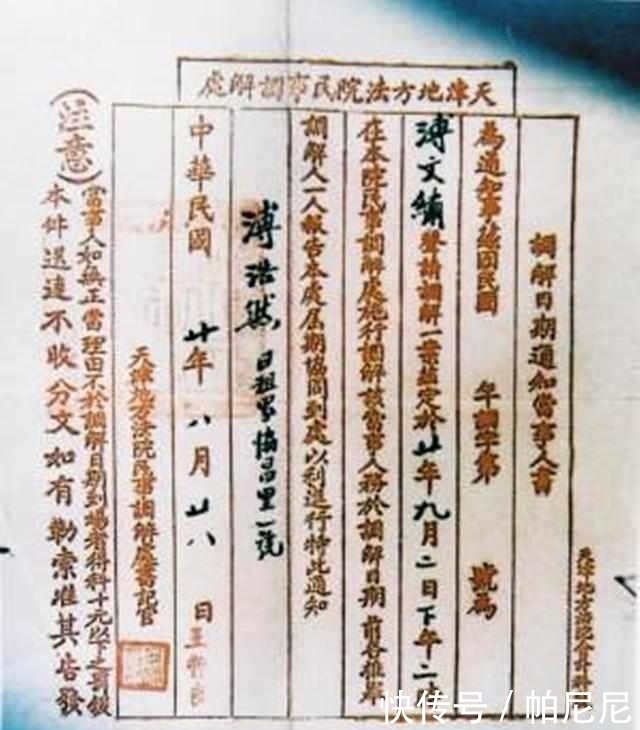 天津地方法院民事調解處
調解日期通知當事人書
為通知事緣因民國 年調字第 號為
溥文繡聲請調解一案茲定於廿年九月二日下午二
在本院民事調解處施行調解該當事人務於調解日期前各推舉
調解人一人報告本處屆期協同到處以利進行特此通知
溥浩然 日租界協昌里一號
中華民國 廿年 八月 廿八 日
天津地方法院民事調解處書記官
(注意)
當事人如無正當理由不於調解日期到場者得科十元以下之罰鍰
本件送達不收分文如有勒索准其告發
快传号 / 帕尼尼